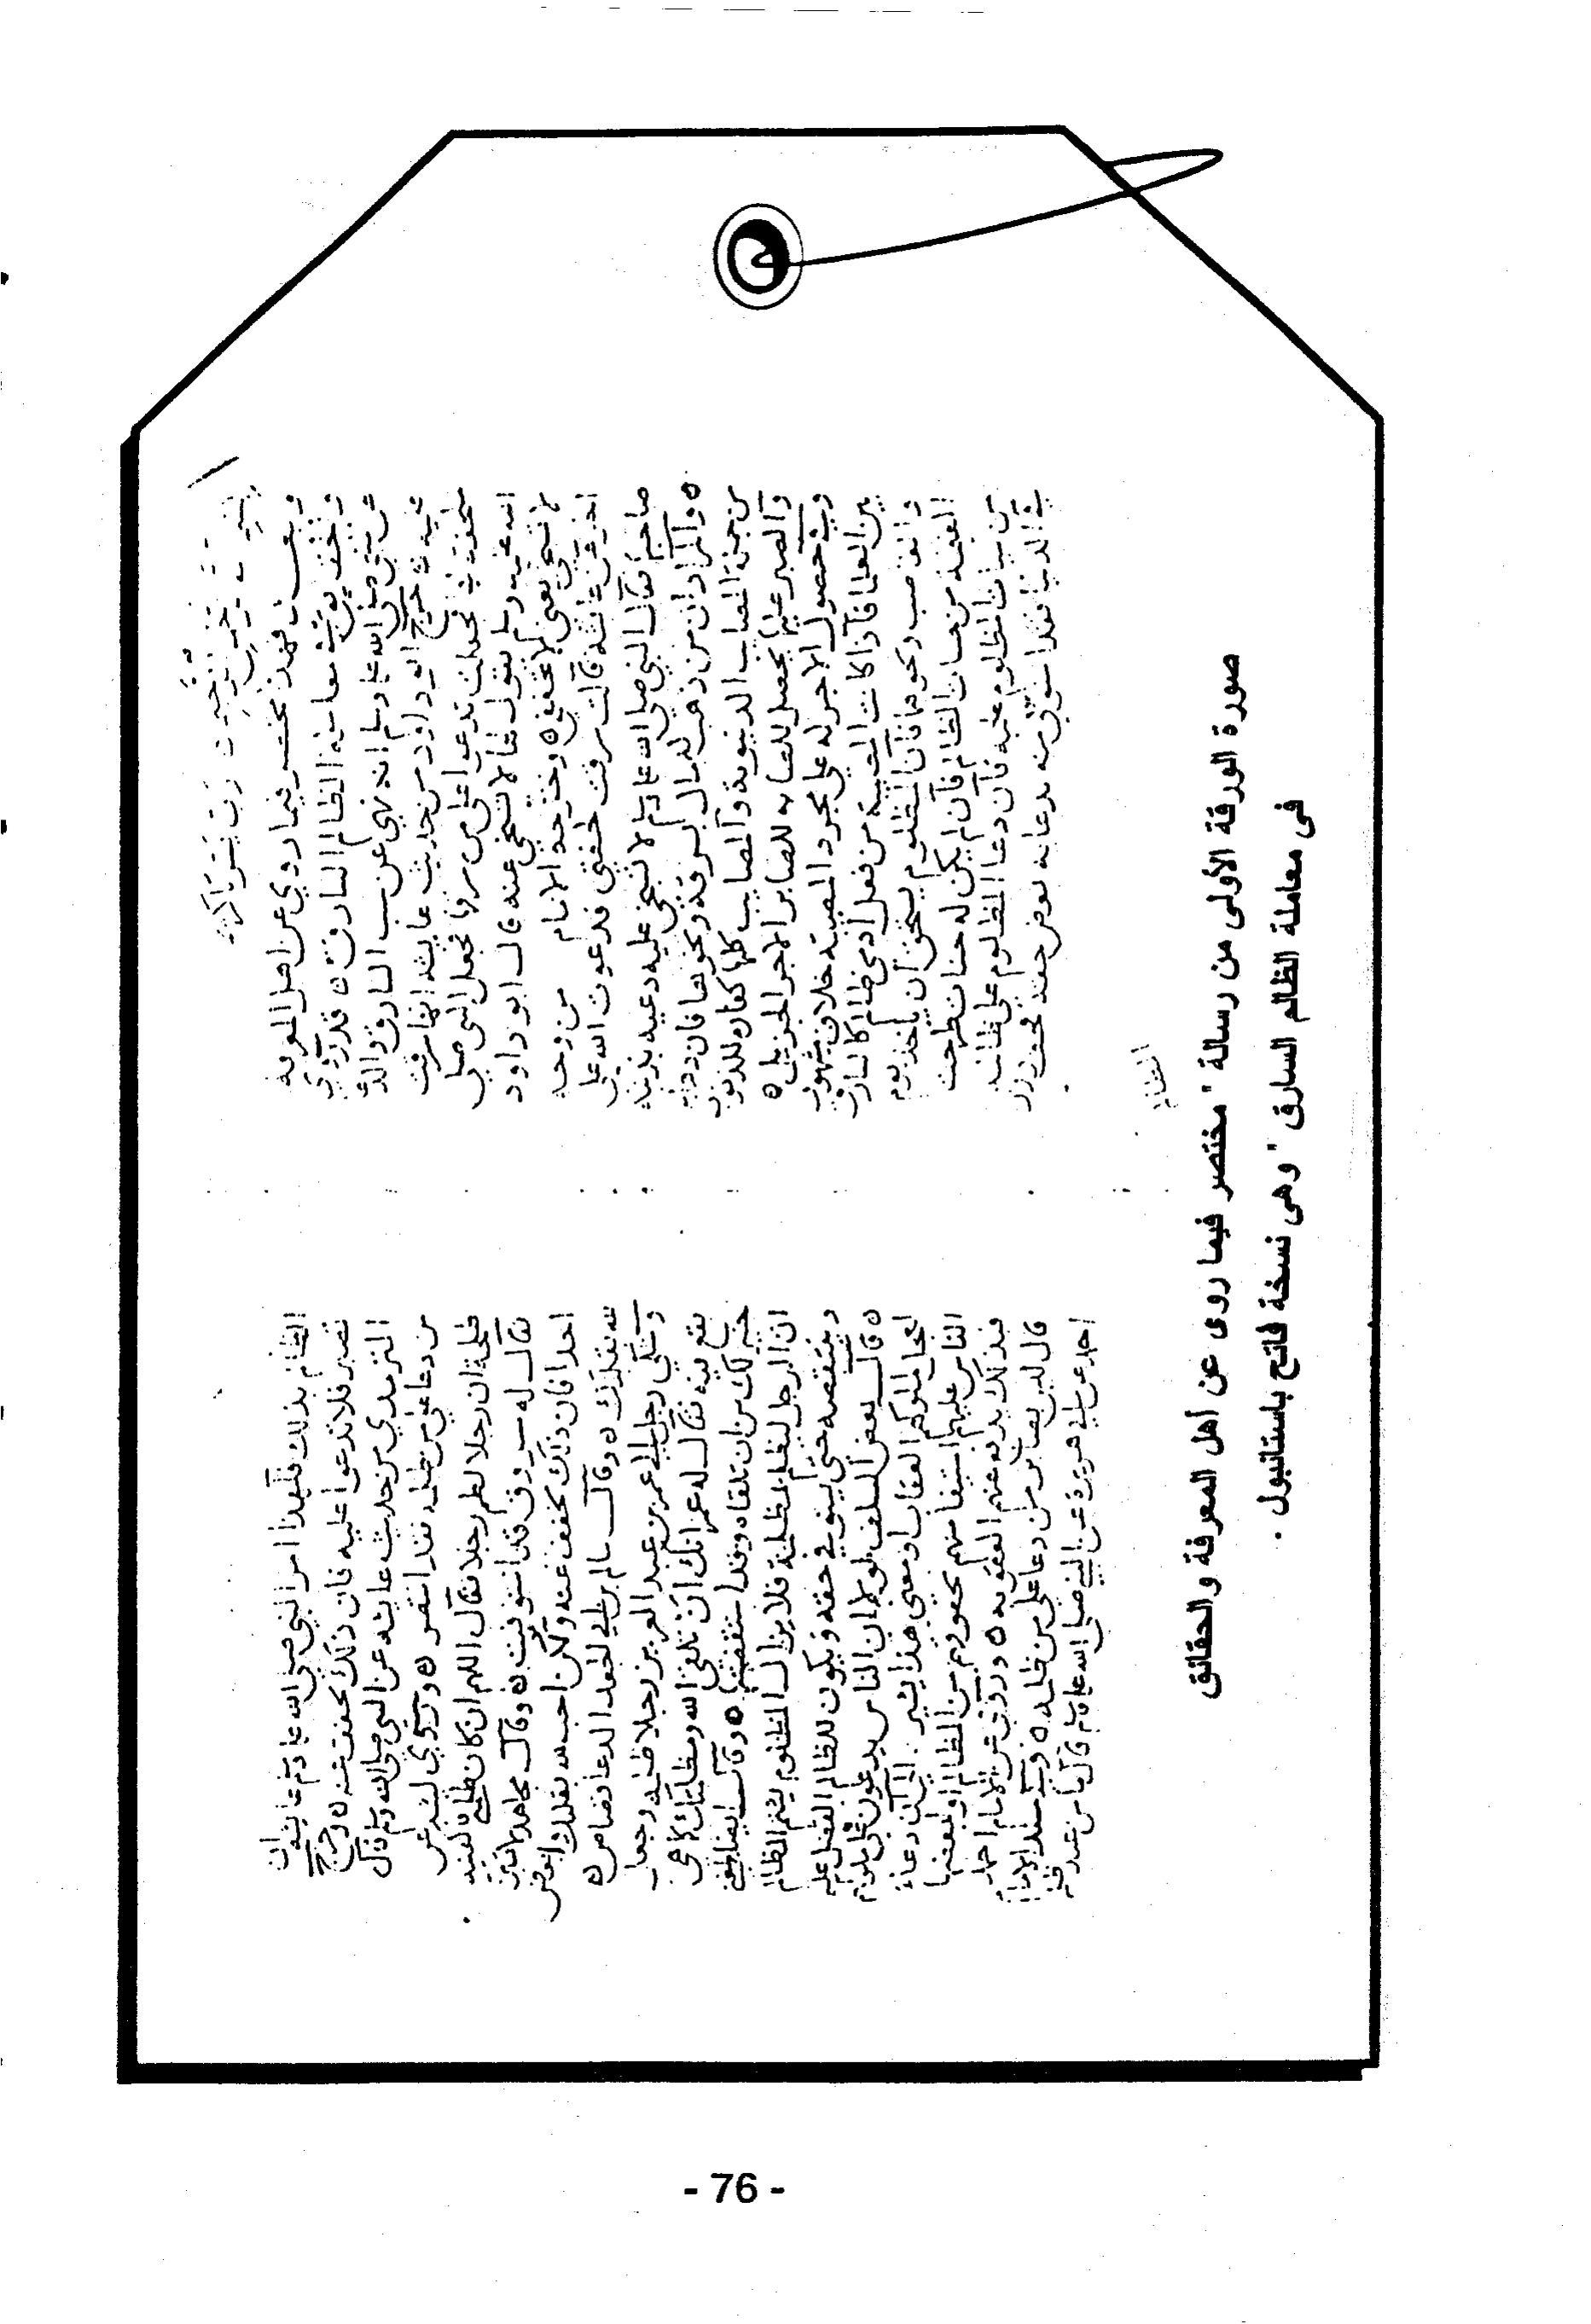 بسم الله الرحمن الرحيم رب يسر يا كريم
وبعد فهذا مختصر فيما روي عن اهل المعرفة
والحقايق في معاملة الظالم السارق ه قد روي
عن النبي صلى الله عليه وسلم انه نهى عن سب السارق والدعا
عليه خرج ابو داود من حديث عايشة انها سرقت
ملحفة لها فجعلت تدعوا على من سرقها فجعل النبي صلى
الله عليه وسلم يقول لها لا تسبخي عنه قال ابو داود
لا تسبخي يعني لا تخففي ه وخرجه الامام من وجه
اخر عن عائشة قالت سرقت مخنقتي فدعوت الله على
صاحبها فقال النبي صلى الله عليه وسلم لا تسبخي عليه دعيه بذنبه
ه والمراد ان من ذهب له مال بسرقة ونحوها فان ذهابه
من جملة المصايب الدنيوية والمصايب كلها كفارة للذنوب
والصبر عليها يحصل للصابر الاجر الجزيل ه
وفي حصول الاجر له على مجرد المصيبة خلاف مشهور
بين العلما فاذا كانت المصيبة من فعل ادمي ظالم كالسارق
والغاصب ونحوهما فان المظلوم يستحق ان ياخذ يوم
القيمة من حسنات الظالم فان لم يكن له حسنات طرحت
من سيئات المظلوم عليه فان دعا المظلوم على ظالمه
في الدنيا فقد استوفى منه بدعائه بعض حقه فيخف وزر
الظالم
الظالم بذلك فلهذا امر النبي صلى الله عليه وسلم عايشة ان
تصبر فلا تدعوا عليه فان ذلك يخفف عنه ه وخرج
الترمذي من حديث عايشة عن النبي صلى الله عليه وسلم قال
من دعا على من ظلمه فقد انتصر ه وروى ليث عن
طلحة ان رجلا لطم رجلا فقال اللهم ان كان ظلمني فاكفنيه
فقال له مسروق قد استوفيت ه وقال مجاهد لا تسبن
احدا فان ذلك يخفف عنه ولكن احب لله بقلبك وابغض
لله بقلبك ه وقال سالم بن ابي الجعد الدعا قصاص ه
وشكى رجل الى عمر بن عبد العزيز رجلا ظلمه وجعل
يقع فيه فقال له عمر انك ان تلقى الله ومظلمتك كما هي
خير لك من ان تلقاه وقد استنقصتها ه وقال ايضا بلغني
ان الرجل ليظلم المظلمة فلا يزال المظلوم يشتم الظالم
وينتقصه حتى يستوفي حقه ويكون للظالم الفضل عليه
ه قال بعض السلف لولا ان الناس يدعون على ملوكهم
لعجل لملوكهم العقاب ومعنى هذا يشير الى ان دعاء
الناس عليهم استيفا منهم بحقوقهم من الظالم او لبعضها
فبذلك يدفع عنهم العقوبة ه وروي عن الامام احمد
قال ليس بصابر من دعا على من ظلمه ه وفي مسند الامام
احمد عن ابي هريرة عن النبي صلى الله عليه وسلم قال ما من عبد
صورة الورقة الأولى من رسالة " مختصر فيما روى عن أهل المعرفة والحقائق
فى معاملة الظالم السارق " وهى نسخة فاتح باستانبول .
- 76 -